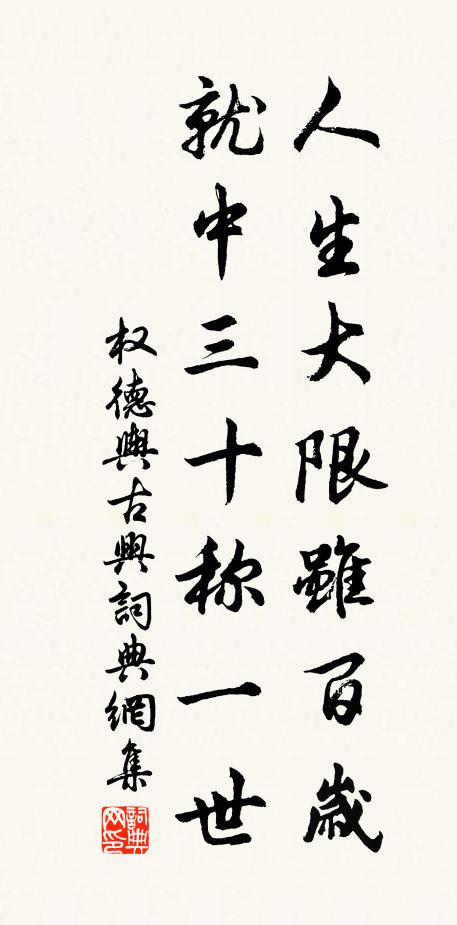 人生大限雖百歲
就中三十称一世
权德輿古興詞典網集
詞典
网印